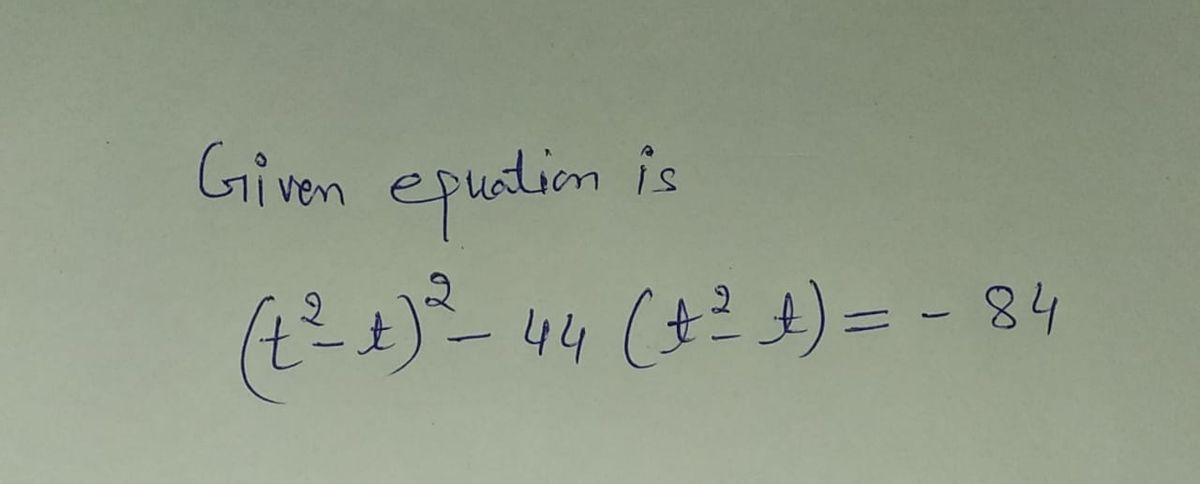 Given equation is
(t²-t)²- 44 (t²- t) = - 84